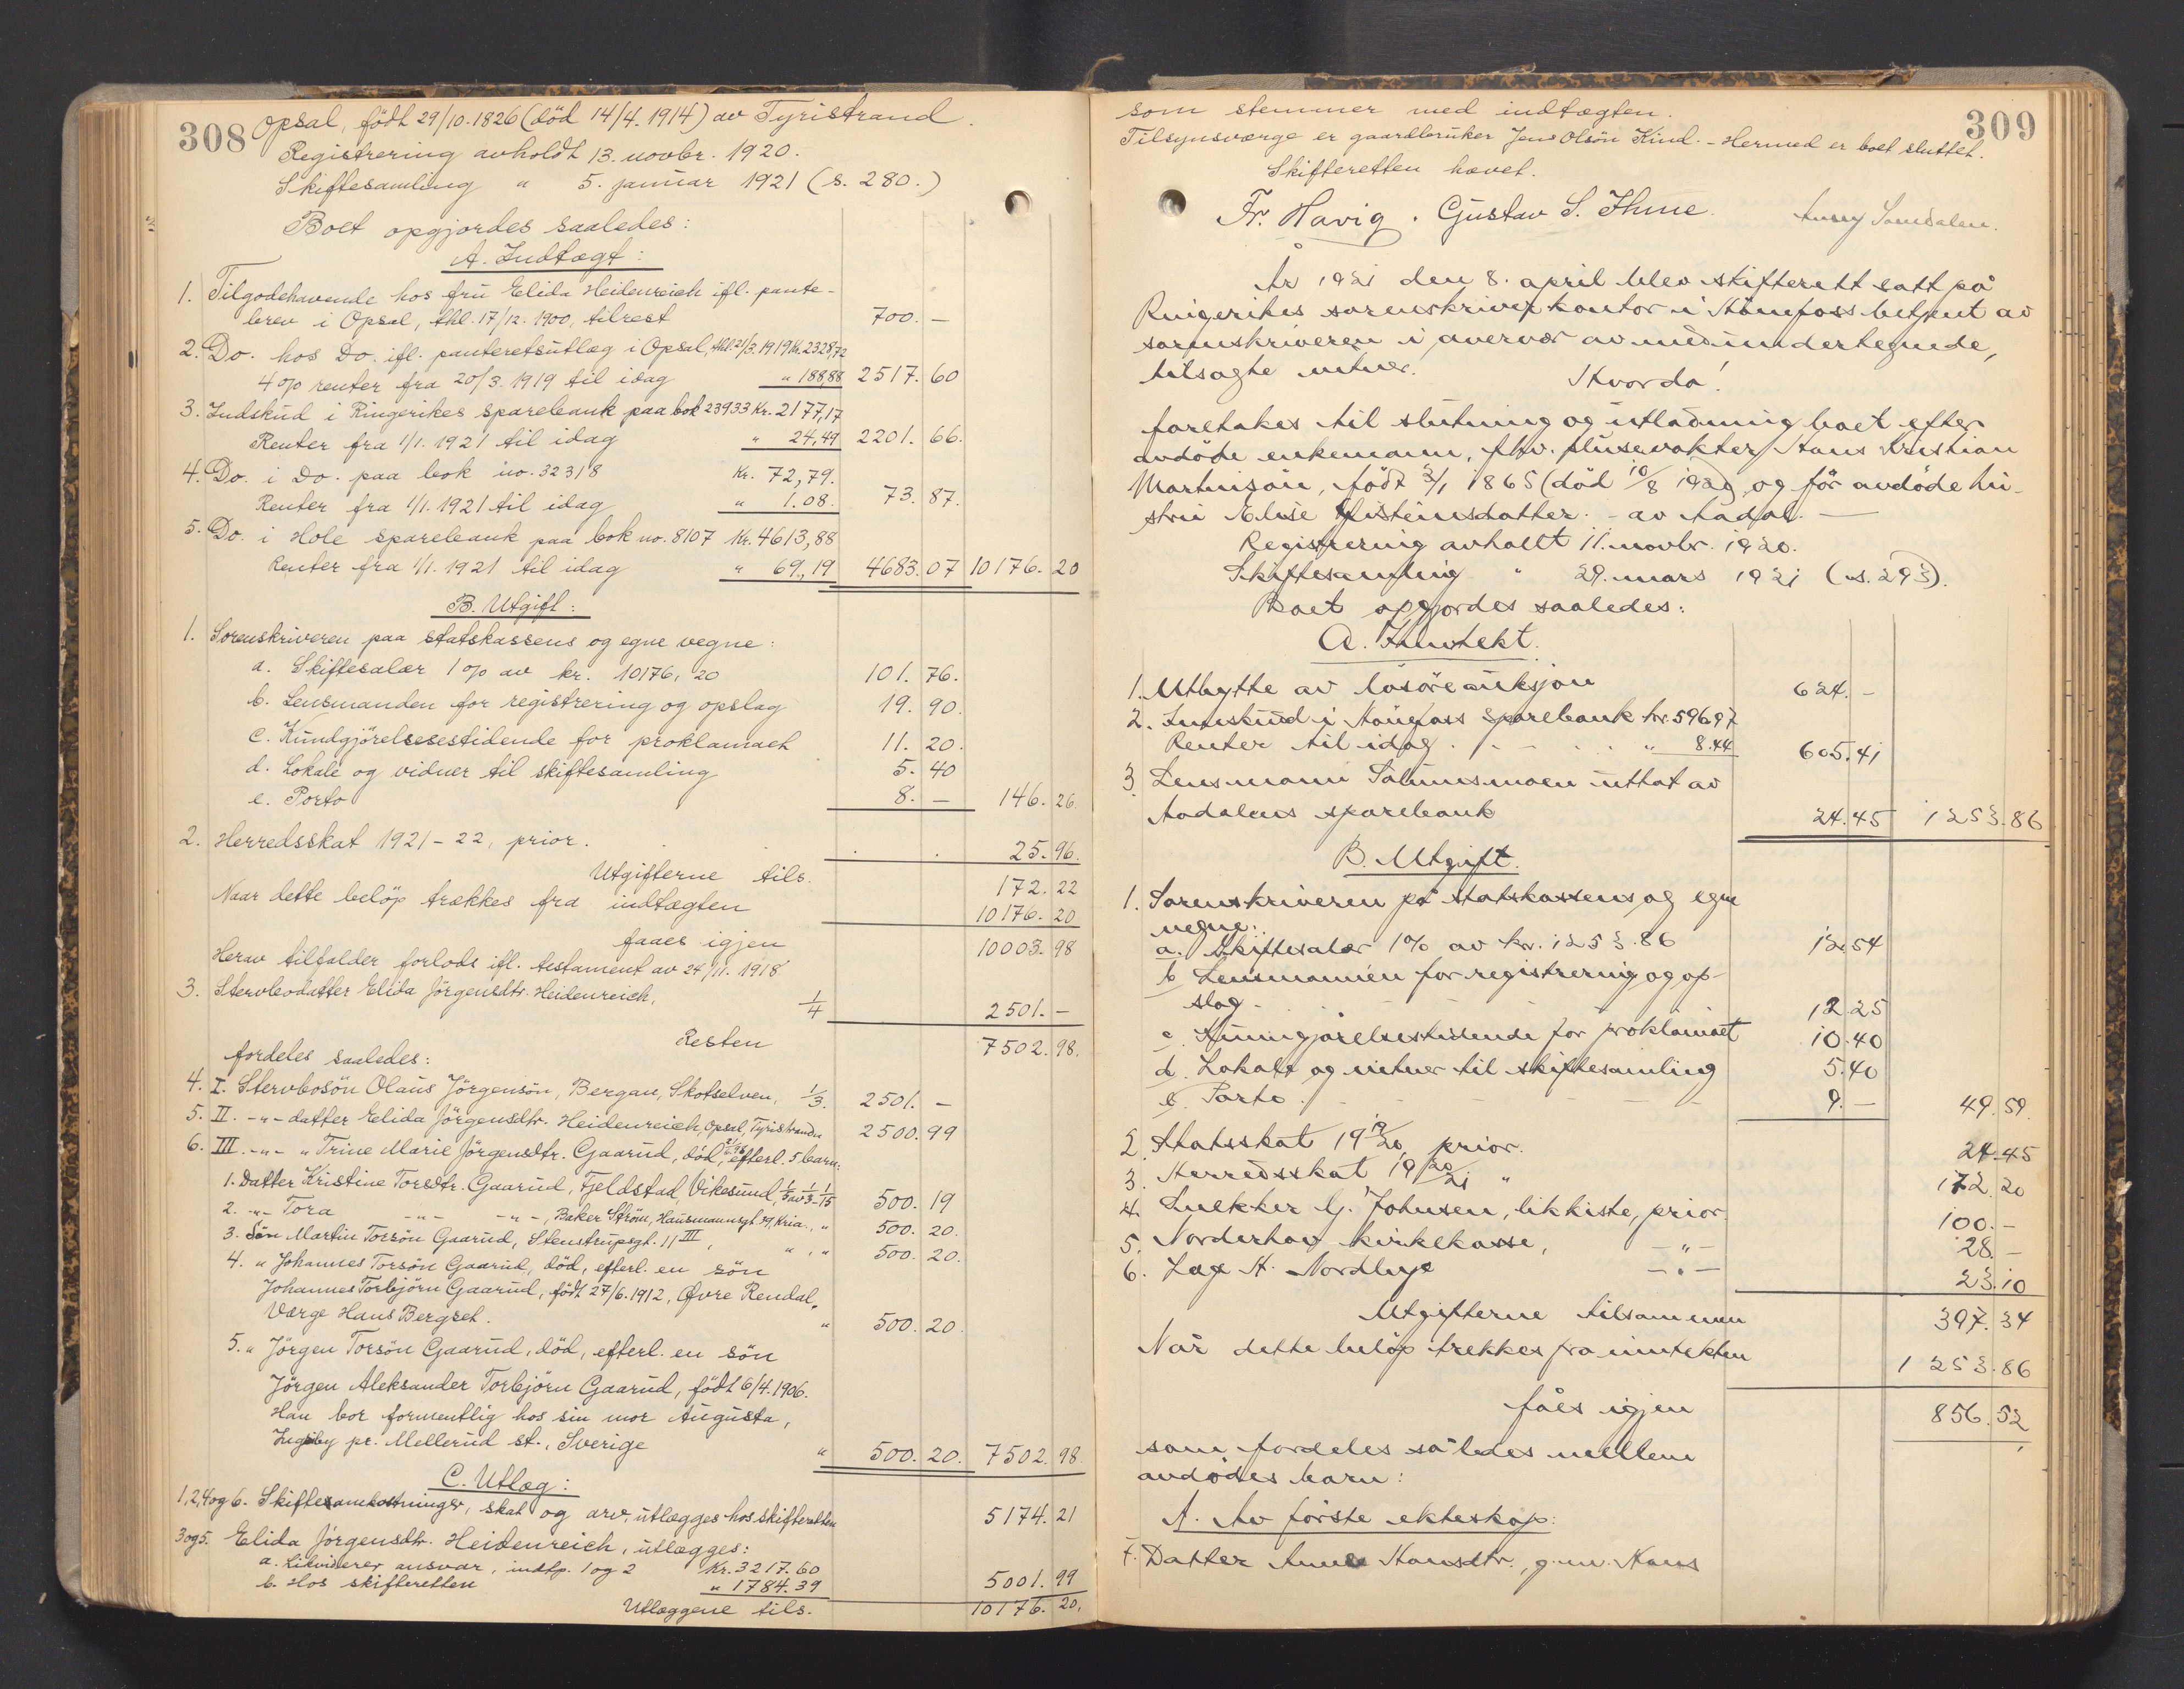 308
Opsal, födt 29/10.1826 (död 14/4.1914) av Tyristrand.
Registrering avholdt 13. novbr. 1920.
Skiftesamling " 5. januar 1921 (s. 280.)
Boet opgjordes saaledes:
A. Indtægt:
1. Tilgodehavende hos fru Elida Heidenreich ifl. pante-
brev i Opsal, thl. 17/12. 1900, tilrest 700. —
2. Do. hos Do. ifl. panteretsutlæg i Opsal, thl. 21/3.1919 Kr. 2328,72
4% renter fra 20/3. 1919 til idag " 188,88 2517. 60
3. Indskud i Ringerikes sparebank paa bok 23933 Kr. 2177,17
Renter fra 1/1. 1921 til idag " 24,49 2201. 66.
4. Do. i Do. paa bok no. 32318 Kr. 72,79.
Renter fra 1/1. 1921 til idag " 1.08. 73. 87.
5. Do. i Hole sparebank paa bok no. 8107 Kr. 4613,88
Renter fra 1/1. 1921 til idag " 69,19 4683. 07 10176. 20
B. Utgift:
1. Sorenskriveren paa statskassens og egne vegne:
a. Skiftesalær 1% av kr. 10176, 20 101. 76.
b. Lensmanden for registrering og opslag 19. 90.
c. Kundgjörelsesestidende for proklamaet 11. 20.
d. Lokale og vidner til skiftesamling 5. 40
e. Porto 8. — 146. 26.
2. Herredsskat 1921-22, prior. 25. 96.
Utgifterne tils. 172. 22
Naar dette belöp trækkes fra indtægten 10176. 20
faaes igjen 10003. 98
Herav tilfalder forlods ifl. testament av 24/11. 1918
3. Stervbodatter Elida Jörgensdtr. Heidenreich, 1/4 2501. —
Resten 7502. 98.
fordeles saaledes:
4. I. Stervbosön Olaus Jörgensön, Bergan, Skotselven, 1/3. 2501. —
5. II. -"- datter Elida Jörgensdtr. Heidenreich, Opsal, Tyristranden 2500. 99
6. III. -"- " Trine Marie Jörgensdtr. Gaarud, död, efterl. 5 barn:
1. Datter Kristine Torsdtr. Gaarud, Fjeldstad, Vikesund, 1/5 av 1/3 = 1/15 500. 19
2. -"- Tora -"- -"-, Baker Ström, Hausmannsgt. 39, Kria., " 500. 20.
3. Sön Martin Torsön Gaarud, Stenstrupsgt. 11 III, " , " 500. 20.
4. " Johannes Torsön Gaarud, död, efterl. en sön
Johannes Torbjörn Gaarud, födt 27/6. 1912, Øvre Rendal.
Værge Hans Bergset. " 500. 20.
5. " Jörgen Torsön Gaarud, död, efterl. en sön
Jörgen Aleksander Torbjörn Gaarud, födt 6/4. 1906.
Han bor formentlig hos sin mor Augusta,
pr. Mellerud st., Sverige " 500. 20. 7502. 98.
C. Utlæg:
1, 2, 4 og 6. Skiftesamkostninger, skat og arv, utlægges hos skifteretten 5174. 21
3 og 5. Elida Jörgensdtr. Heidenreich, utlægges:
a. Likviderer ansvar, indtp. 1 og 2 Kr. 3217.60
b. Hos skifteretten " 1784.39 5001. 99
Utlæggene tils. 10176. 20.
309
som stemmer med indtægten.
Tilsynsværge er gaardbruker Jens Olsön Kind. - Hermed er boet sluttet.
Skifteretten hævet.
Fr. Havig. Gustav S. Ihme.
År 1921 den 8. april blev skifterett satt på
Ringerikes sorenskriverkontor i Hönefoss betjent av
sorenskriveren i overvær av medundertegnede,
tilsagte vitner. Hvorda!
foretakes til slutning og utlodning boet efter
avdöde enkemann, fhv. Hans Kristian
Martinsön, födt 3/1 1865 (död 10/8 1920) og för avdöde hu-
stru Elise Gisteinsdatter. - av Aadal. —
Registrering avholdt 11. novbr. 1920.
Skiftesamling " 29. mars 1921 (s. 293).
Boet opgjordes saaledes:
A. Inntekt.
1. Utbytte av lösöreauksjon 624. -
2. Innskud i Hönefoss sparebank kr. 596.97
Renter til idag . . . " 8.44 605. 41
3. Lensmann uttat av
Aadalens sparebank 24. 45 1253. 86
B. Utgift.
1. Sorenskriveren på statskassens og egne
vegne:
a. Skiftesalær 1% av kr. 1253.86 12. 54
b. Lensmannen for registrering og op-
slag 12. 25
c. Kunngjörelsestidende for proklamaet 10. 40
d. Lokale og vitner til skiftesamling 5. 40
e. Porto 9. — 49. 59.
2. Statsskat 1919/20, prior. 24. 45
3. Herredsskat 1920/21 " 172. 20
4. Snekker G. Johnsen, likkiste, prior. 100. -
5. Norderhov kirkekasse, -"- 28. -
6. Læge H. Nordbye -"- 23. 10
Utgifterne tilsammen 397. 34
Når dette belöp trekkes fra inntekten 1253. 86
fåes igjen 856. 52
som fordeles således mellem
avdödes barn:
A. Av förste ekteskap:
7. Datter Anne Hansdtr., g.m. Hans